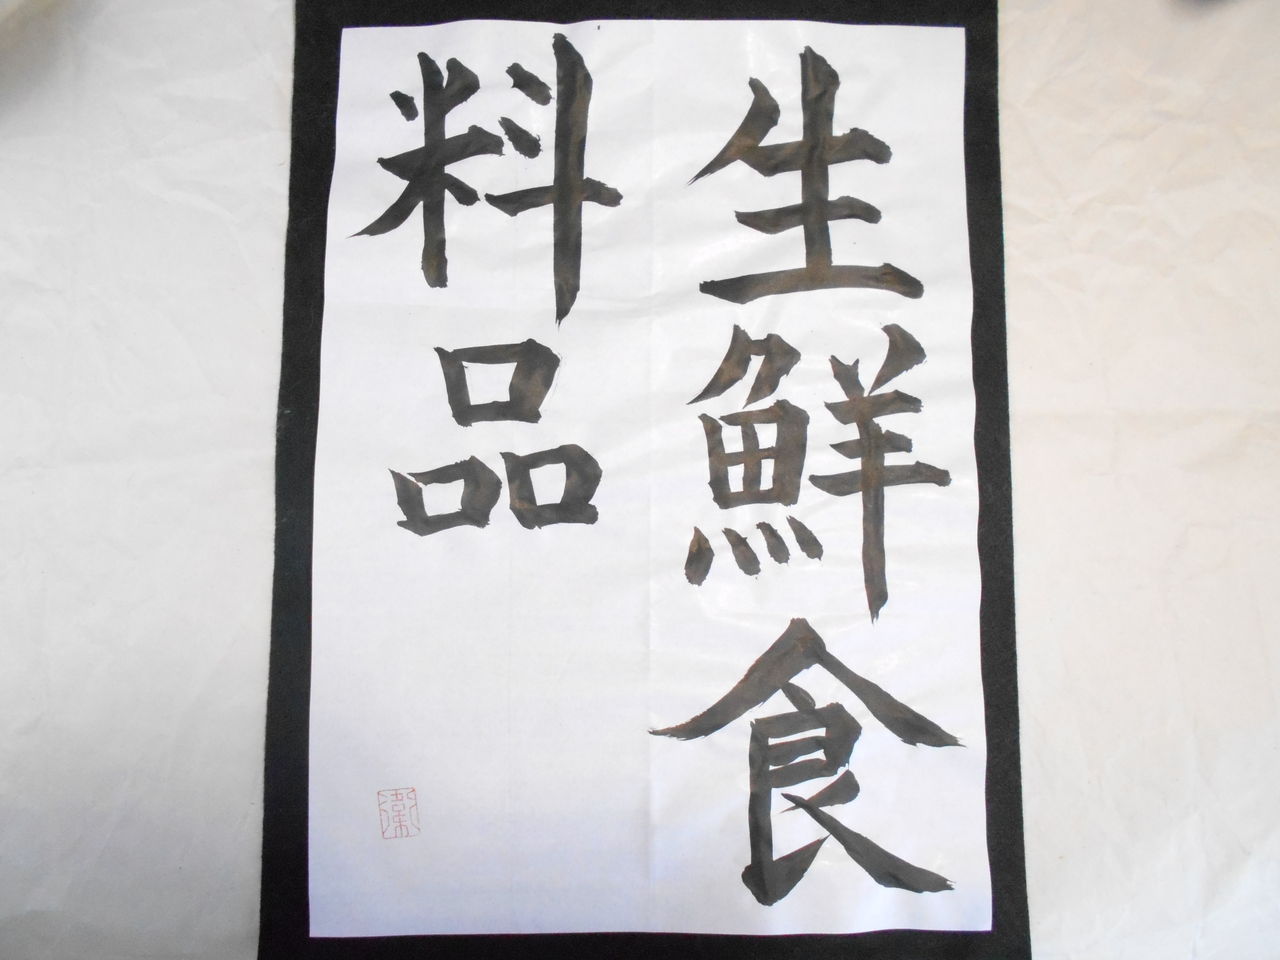 生鮮食
料品